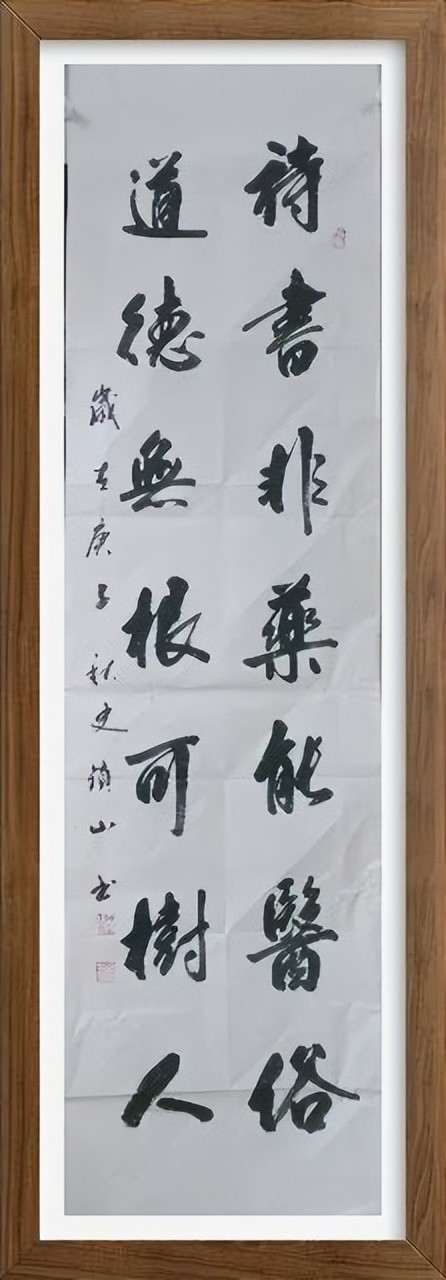 詩書非藥能醫俗
道德無根可樹人
歲在庚子秋史鎖山书